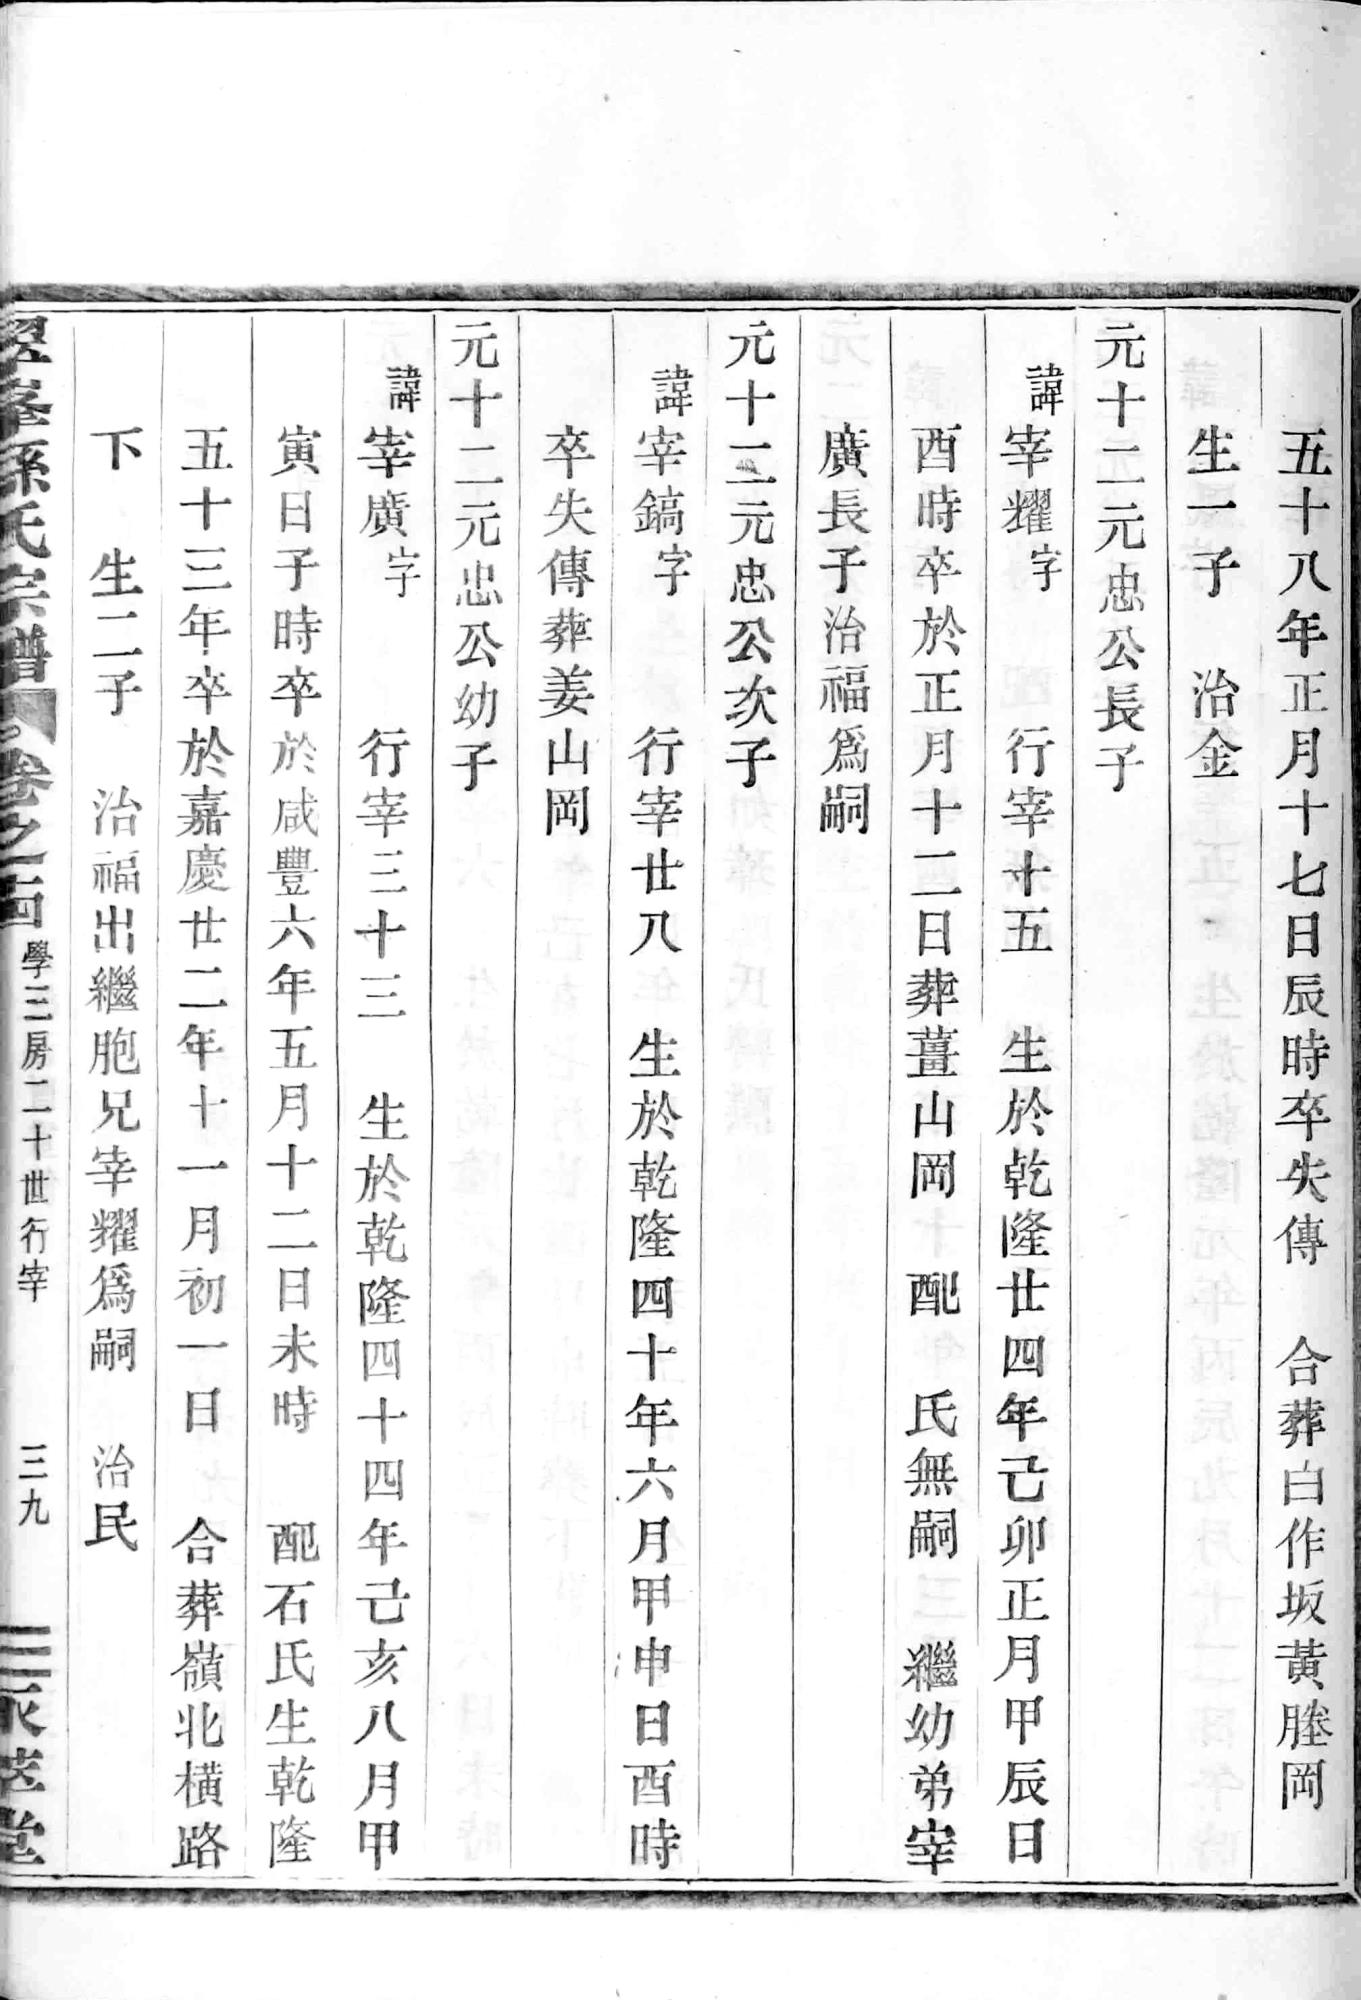 五十八年正月十七日辰時卒失傳　合葬白作坂黃塍岡
生一子　治金
元十二元忠公長子
諱宰耀字　行宰十五　生於乾隆廿四年己卯正月甲辰日
酉時卒於正月十二日葬薑山岡　配　氏無嗣　繼幼弟宰
廣長子治福爲嗣
元十二元忠公次子
諱宰鎬字　行宰廿八　生於乾隆四十年六月甲申日酉時
卒失傳葬姜山岡
元十二元忠公幼子
諱宰廣字　行宰三十三　生於乾隆四十四年己亥八月甲
寅日子時卒於咸豐六年五月十二日未時　配石氏生乾隆
五十三年卒於嘉慶廿二年十一月初一日　合葬嶺北橫路
下　生二子　治福出繼胞兄宰耀爲嗣　治民
峯孫氏宗譜　卷之十四　學三房二十世行宰　三九　堂